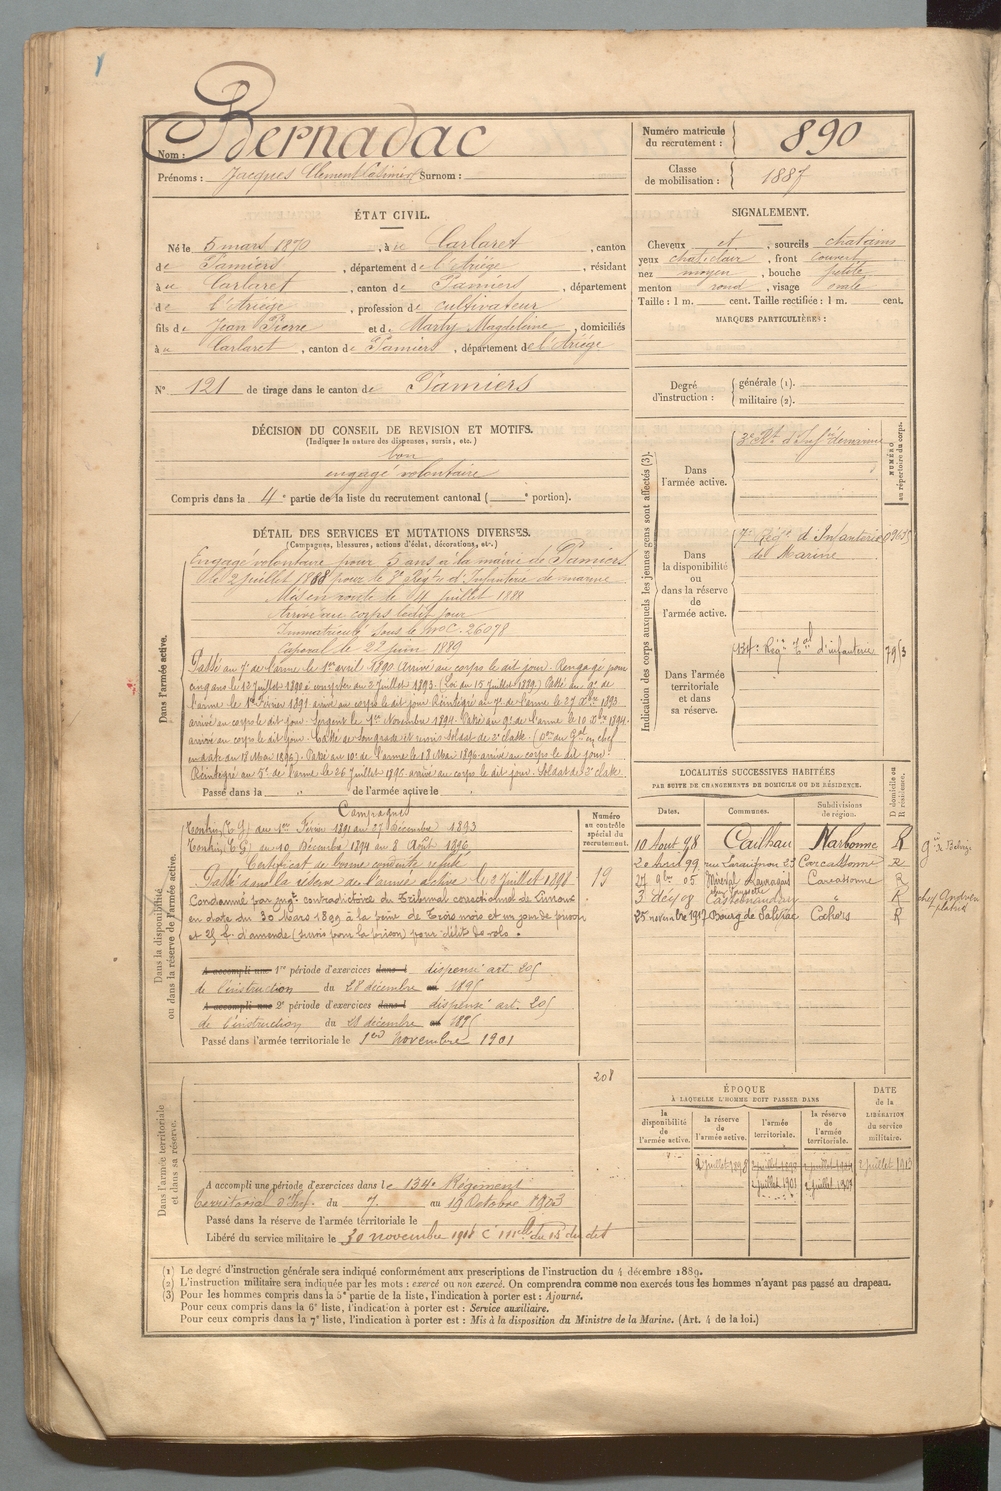 Nom : Bernadac
Prénoms : Jacques Clement Casimir Surnom :
Numéro matricule du recrutement : 890
Classe de mobilisation : 1887
ÉTAT CIVIL.
Né le 5 mars 1870, à Carlaret, canton
de Pamiers, département de l'Ariège, résidant
à Carlaret, canton de Pamiers, département
de l'Ariège, profession de cultivateur
fils de Jean Pierre et de Marty Magdeleine, domiciliés
à Carlaret, canton de Pamiers, département de l'Ariège
N° 121 de tirage dans le canton de Pamiers
SIGNALEMENT.
Cheveux et, sourcils chatains
yeux chat. clair, front couvert
nez moyen, bouche petite
menton rond, visage ovale
Taille : 1 m. cent. Taille rectifiée : 1 m. cent.
MARQUES PARTICULIÈRES :
Degré d'instruction : générale (1).
militaire (2).
DÉCISION DU CONSEIL DE REVISION ET MOTIFS.
(Indiquer la nature des dispenses, sursis, etc.)
bon
engagé volontaire
Compris dans la 4e partie de la liste du recrutement cantonal ( e portion).
DÉTAIL DES SERVICES ET MUTATIONS DIVERSES.
(Campagnes, blessures, actions d'éclat, décorations, etc.)
Dans l'armée active.
Engagé volontaire pour 5 ans à la mairie de Pamiers
le 2 juillet 1888 pour le Régt d'Infanterie de marine
Mis en route le 4 juillet 1888
Arrivé au corps ledit jour
Immatriculé sous le n° C. 26078
Caporal le 22 juin 1889
Passé au 7e de l'arme le 1er avril 1890 arrivé au corps le dit jour. Rengagé pour
cinq ans le 12 juillet 1890 à compter du 2 juillet 1893. (Loi du 15 juillet 1889.) Passé au 9e de
l'arme le 1er Février 1891 arrivé au corps le dit jour Réintegré au 7e de l'arme le 27 Xbre 1893
arrivé au corps le dit jour. Sergent le 1er Novembre 1894. Passé au 9e de l'arme le 10 Xbre 1894.
arrivé au corps le dit jour. Cassé de son grade et remis soldat de 2e classe. (Don du Gal en chef
en date du 18 Mai 1896). Passé au 10e de l'arme le 18 Mai 1896 arrivé au corps le dit jour
Réintegré au 5e de l'arme le 26 Juillet 1896 arrivé au corps le dit jour. Soldat de 2e classe.
Passé dans la " de l'armée active le
Dans la disponibilité ou dans la réserve de l'armée active.
Campagnes
Tonkin (E G) du 1er Février 1891 au 27 Décembre 1893
Tonkin (E G) du 10 Décembre 1894 au 8 Août 1896
Certificat de bonne conduite refusé
Passé dans la réserve de l'armée active le 2 Juillet 1898
Condamné par jugt contradictoire du Tribunal correctionnel de Limoux
en date du 30 Mars 1899 à la peine de trois mois et un jour de prison
et 25 f. d'amende (sursis pour la prison) pour délits de vols.
A accompli une 1re période d'exercices dans l dispensé art. 205
de l'instruction du 28 décembre au 1895
A accompli une 2e période d'exercices dans l dispensé art. 205
de l'instruction du 28 décembre au 1895
Passé dans l'armée territoriale le 1er Novembre 1901
Numéro au contrôle spécial du recrutement.
19
208
Dans l'armée territoriale et dans sa réserve.
A accompli une période d'exercices dans le 134e Régiment
Territorial d'Inf. du 7 au 19 Octobre 1903
Passé dans la réserve de l'armée territoriale le
Libéré du service militaire le 30 novembre 1918 C mlle du 15 du dit
Indication des corps auxquels les jeunes gens sont affectés (3).
NUMÉRO au répertoire du corps.
Dans l'armée active.
3e Rt d'Infrie de marine
Dans la disponibilité ou dans la réserve de l'armée active.
7e Régt d'Infanterie
de Marine
Dans l'armée territoriale et dans sa réserve.
134e Régt Tal d'infanterie
LOCALITÉS SUCCESSIVES HABITÉES
PAR SUITE DE CHANGEMENTS DE DOMICILE OU DE RÉSIDENCE.
Dates. Communes. Subdivisions de région. D domicile ou R résidence.
10 Aout 98 Cailhau Narbonne R
2 Avril 99 rue 23 Carcassonne R
05 Mireval Lauragais Carcassonne R
3 déc 08 Castelnaudary " R
25 novembre 1917 Bourg de Cahors R
ÉPOQUE
À LAQUELLE L'HOMME DOIT PASSER DANS
la disponibilité de l'armée active. la réserve de l'armée active. l'armée territoriale. la réserve de l'armée territoriale.
DATE de la LIBÉRATION du service militaire.
2 juillet 1898 2 juillet 1913
2 juillet 1901 2 juillet 1907
(1) Le degré d'instruction générale sera indiqué conformément aux prescriptions de l'instruction du 4 décembre 1889.
(2) L'instruction militaire sera indiquée par les mots : exercé ou non exercé. On comprendra comme non exercés tous les hommes n'ayant pas passé au drapeau.
(3) Pour les hommes compris dans la 5e partie de la liste, l'indication à porter est : Ajourné.
Pour ceux compris dans la 6e liste, l'indication à porter est : Service auxiliaire.
Pour ceux compris dans la 7e liste, l'indication à porter est : Mis à la disposition du Ministre de la Marine. (Art. 4 de la loi.)